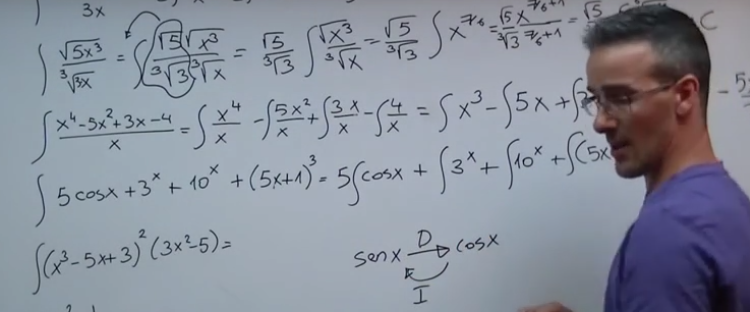 3x
∫ √5x³/∛3x = ∫ √5 √x³/∛3 ∛x = √5/∛3 ∫ √x³/∛x = √5/∛3 ∫ x^7/6 = √5 x^7/6+1/∛3 7/6+1 = √5 C
∫ x⁴-5x²+3x-4/x = ∫ x⁴/x - ∫ 5x²/x + ∫ 3x/x - ∫ 4/x = ∫ x³ - ∫ 5x + ∫ - 5x
∫ 5 cosx + 3^x + 10^x + (5x+1)³ = 5∫ cosx + ∫ 3^x + ∫ 10^x + ∫ (5x
∫ (x³-5x+3)² (3x²-5) =
senx D cosx
I